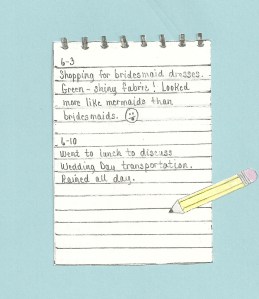 6-3
Shopping for bridesmaid dresses.
Green-shiny fabric! Looked
more like mermaids than
bridesmaids.
6-10
Went to lunch to discuss
Wedding Day transportation.
Rained all day.